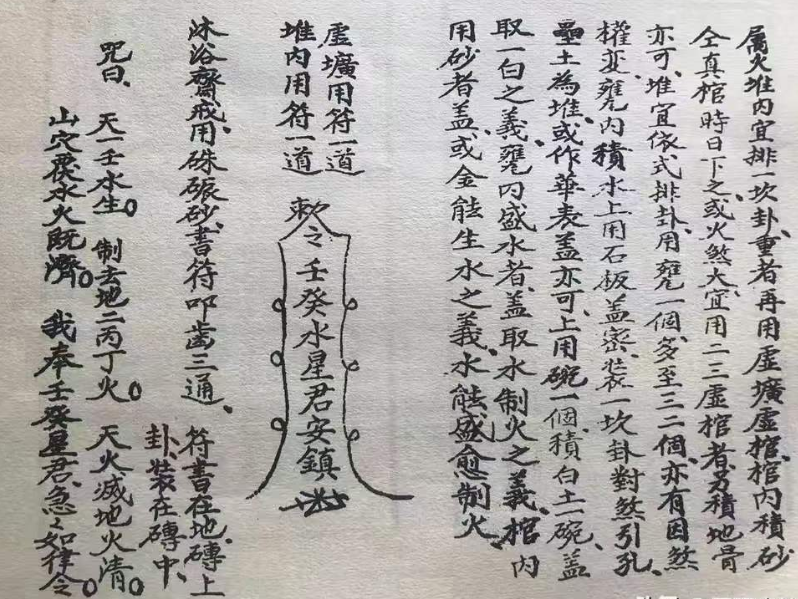 属火堆内宜排一坎卦、重者再用虚壙虚棺、棺内積砂
仝真棺時日下之、或火煞大宜用二三虚棺者、另積地骨
亦可、堆宜依式排卦、用甕一個、多至三二個、亦有因煞
權变、甕内積水上用石板盖密、装一坎卦對煞引孔、
壘土為堆、或作華表盖亦可、上用碗一個、積白土一碗、盖
取一白之義、甕内盛水者、盖取水制火之義、棺内
用砂者盖、或金能生水之義、水能盛愈制火、
虚壙用符一道
堆内用符一道
敕令壬癸水星君安鎮
沐浴齋戒、用硃碾砂、書符叩齒三通、
符書在地磚上
卦、装在磚中、
咒曰、天一壬水生。制去地二丙丁火。天火滅地火清。
山穴水火既濟。我奉壬癸星君、急〻如律令。